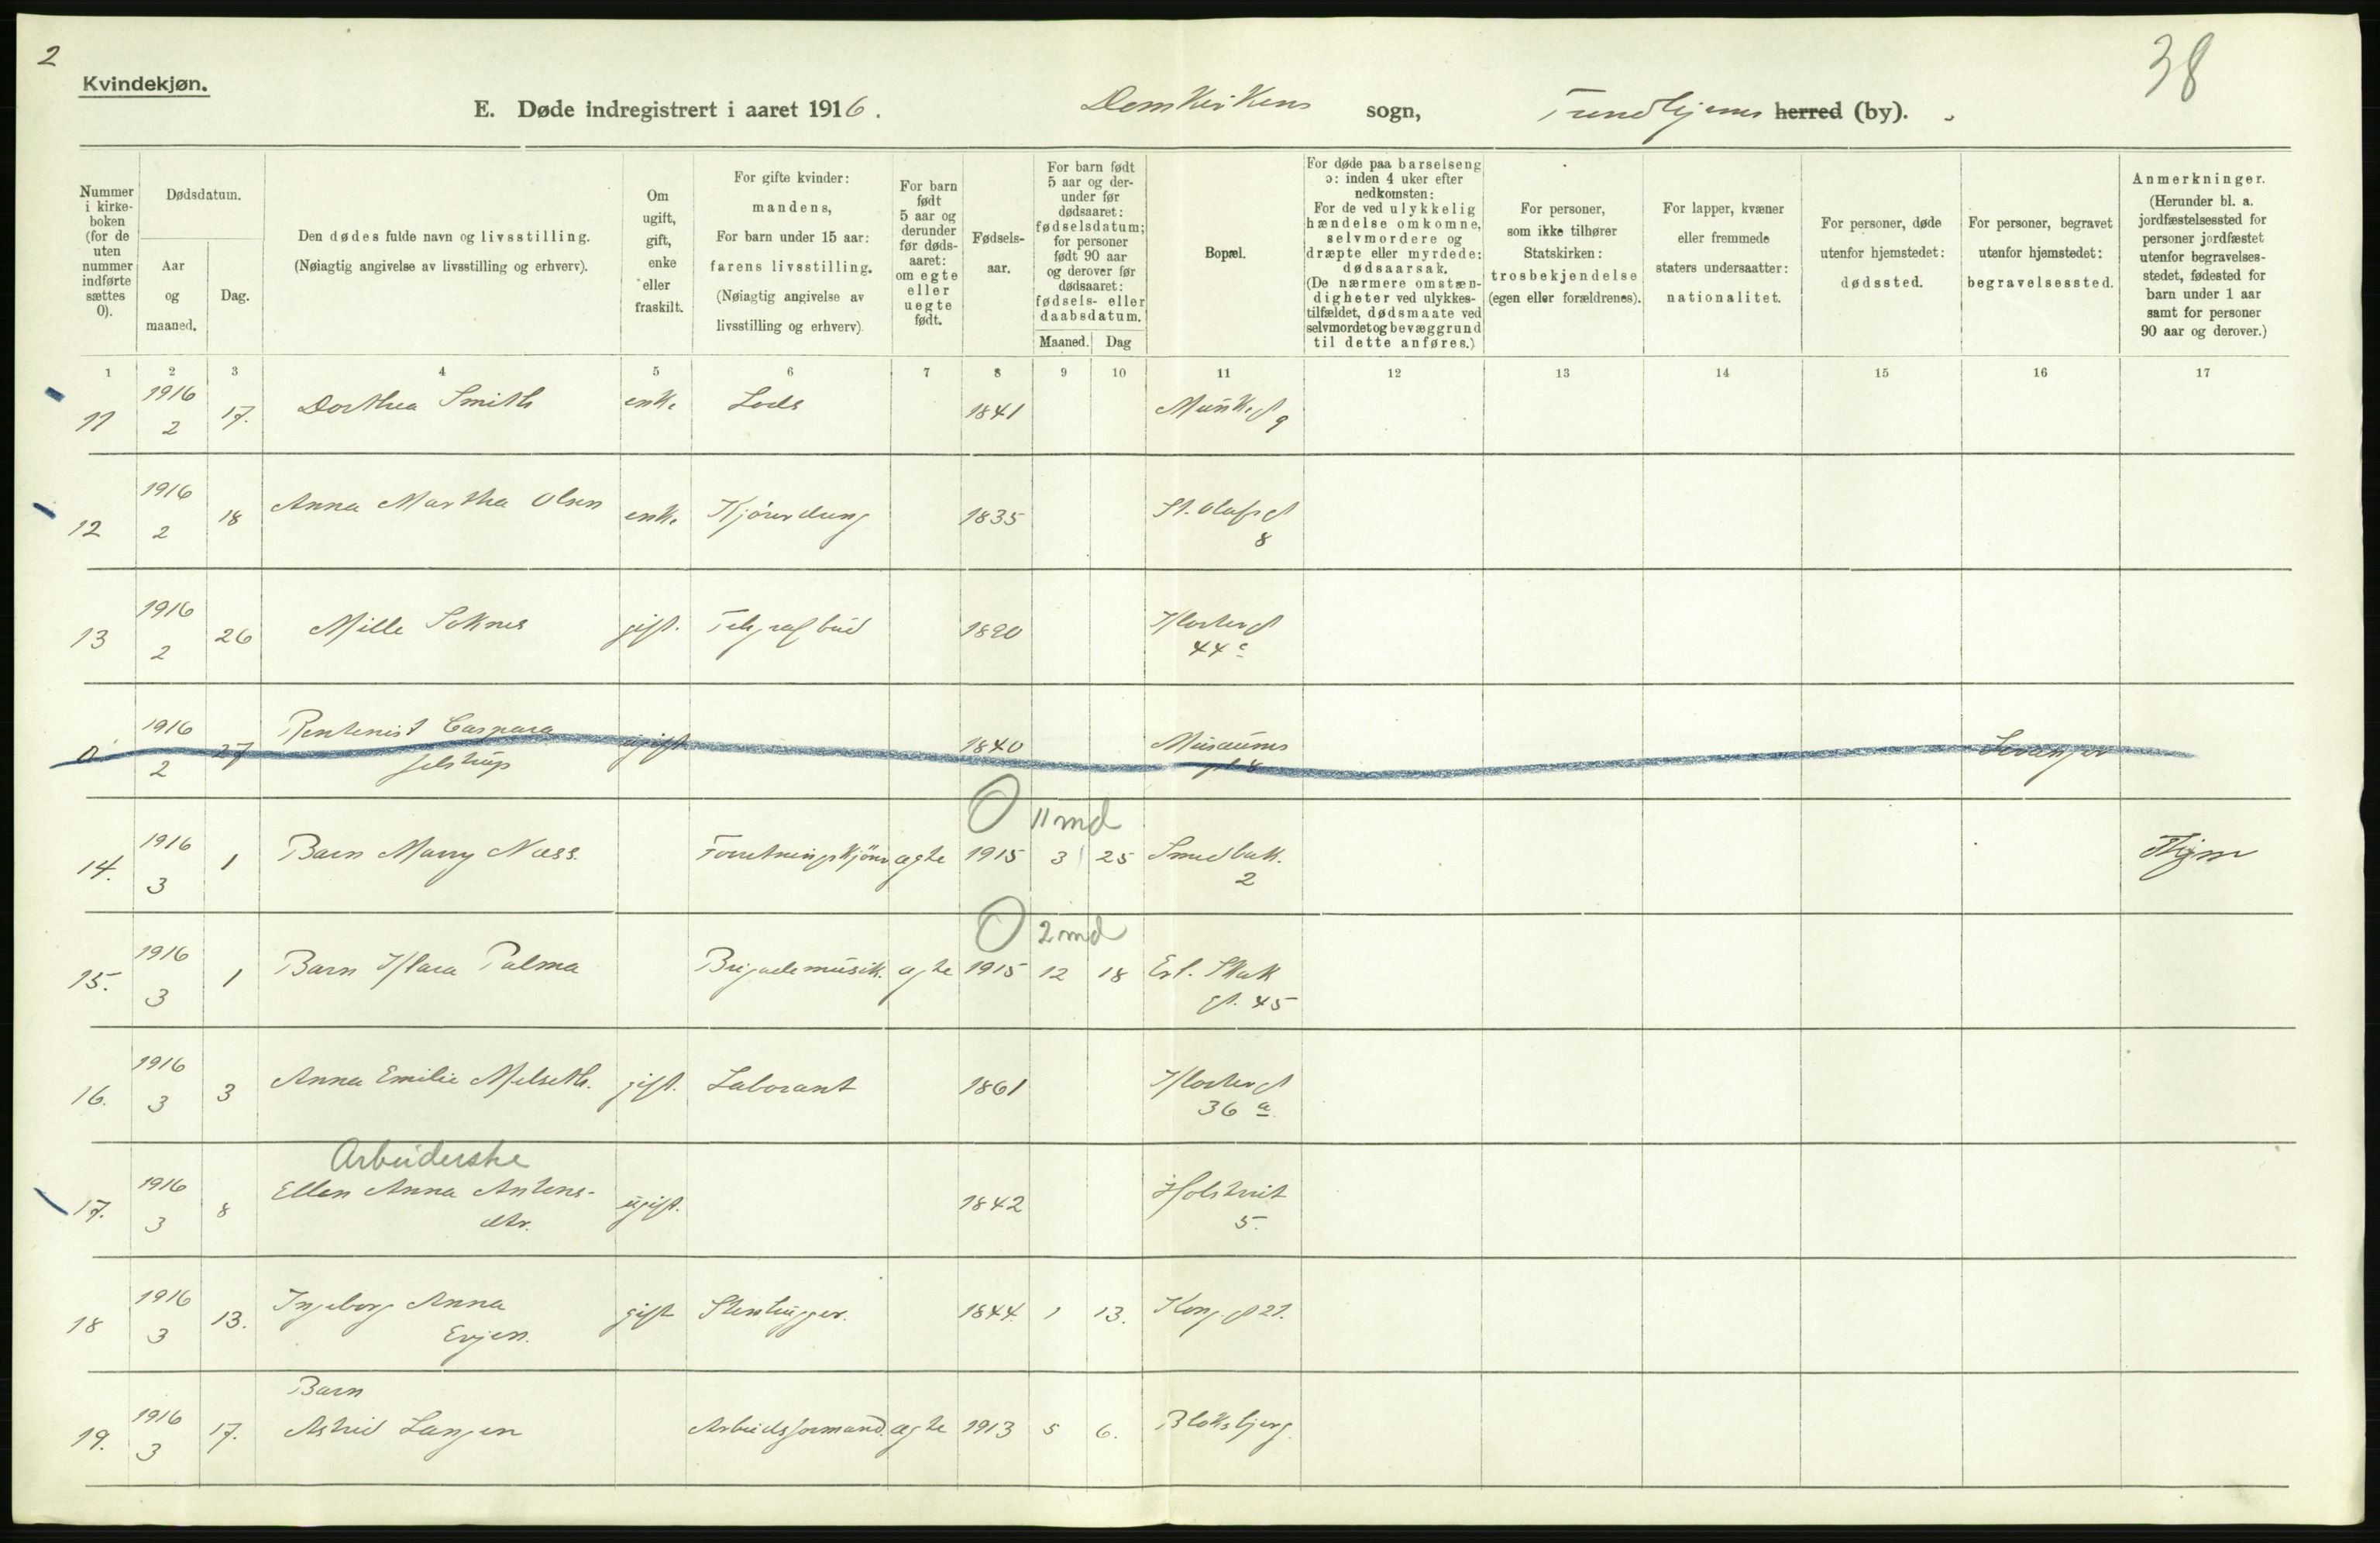 2
38
Kvindekjøn.
E. Døde indregistrert i aaret 1916.
Domkirkens sogn,
Trondhjems herred (by).
Nummer i kirkeboken (for de uten nummer indførte sættes 0).
Dødsdatum.
Aar og maaned.
Dag.
Den dødes fulde navn og livsstilling.
(Nøiagtig angivelse av livsstilling og erhverv).
Om ugift, gift, enke eller fraskilt.
For gifte kvinder: mandens,
For barn under 15 aar: farens livsstilling.
(Nøiagtig angivelse av livsstilling og erhverv).
For barn født 5 aar og derunder før dødsaaret: om egte eller uegte født.
Fødselsaar.
For barn født 5 aar og derunder før dødsaaret: fødselsdatum; for personer født 90 aar og derover før dødsaaret: fødsels- eller daabsdatum.
Maaned. Dag
Bopæl.
For døde paa barselseng ɔ: inden 4 uker efter nedkomsten:
For de ved ulykkelig hændelse omkomne, selvmordere og dræpte eller myrdede: dødsaarsak.
(De nærmere omstændigheter ved ulykkestilfældet, dødsmaate ved selvmordet og bevæggrund til dette anføres.)
For personer, som ikke tilhører Statskirken: trosbekjendelse (egen eller forældrenes).
For lapper, kvæner eller fremmede staters undersaatter: nationalitet.
For personer, døde utenfor hjemstedet: dødssted.
For personer, begravet utenfor hjemstedet: begravelsessted.
Anmerkninger.
(Herunder bl. a. jordfæstelsessted for personer jordfæstet utenfor begravelsesstedet, fødested for barn under 1 aar samt for personer 90 aar og derover.)
1 2 3 4 5 6 7 8 9 10 11 12 13 14 15 16 17
11 1916 2 17. Dorthea Smith enke Lods 1841 Munkegt 9
12 1916 2 18 Anna Martha Olsen enke Kjøredreng 1835 St. Olafsgt 8
13 1916 2 26 Mille Soknes gift. Telegrafbud 1890 Klostergt 44 c
0 1916 2 27 Rentenist Caspara Jelstrup ugift 1840 Musæums pl 8 Levanger
O 11 md
14. 1916 3 1 Barn Marry Næss. Forretningskjører ægte 1915 3 25 Smedbak. 2 Thjm
O 2 md
15. 1916 3 1 Barn Klara Palma Brigademusik. ægte 1915 12 18 Erl. Skak gt. 45
16. 1916 3 3 Anna Emilie Melseth. gift. Laborant 1861 Klostergt 36 a
Arbeiderske
17. 1916 3 8 Ellen Anna Antons- dtr. ugift. 1842 Holstveit 5.
18 1916 3 13. Ingeborg Anna Evjen. gift Stenhugger. 1844. 1 13. Kongsgt 21.
Barn
19. 1916 3 17. Astrid Langen Arbeidsformand. ægte 1913 5 6. Bloksbjerg.